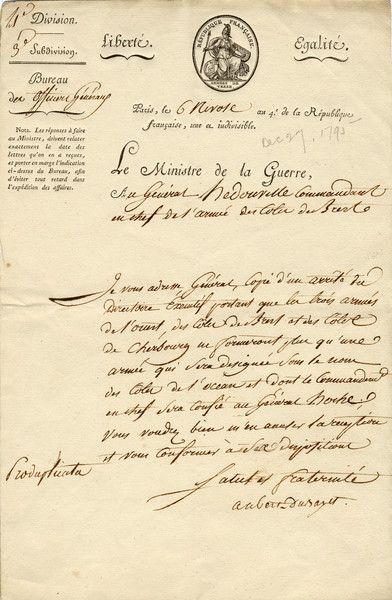 4e Division.
3e Subdivision.
Bureau
des officiers Généraux
NOTA. Les réponses à faire
au Ministre, doivent relater
exactement la date des
lettres qu'on en a reçues,
et porter en marge l'indication
ci-dessus du Bureau, afin
d'éviter tout retard dans
l'expédition des affaires.
Liberté.
RÉPUBLIQUE FRANÇAISE.
Egalité.
Paris, le 6 Nivose au 4e. de la République
française, une et indivisible.
Dec 27, 1795
Le Ministre de la Guerre,
Au Général Hedouville Commandant
en chef de l'armée des Côtes de Brest
Je vous adresse Général, Copie d'un arrêté du
Directoire Exécutif portant que les trois armées
de l'ouest des Côtes de Brest et des Côtes
de Cherbourg ne formeront plus qu'une
armée qui sera designée sous le nom
des Côtes de l'océan et dont le Commandemt
en chef sera confié au Général Hoche;
vous voudrez bien m'en accuser la réception
et vous Conformer à ses dispositions
Salut et fraternité
Produplicata
aubert-Dubayet